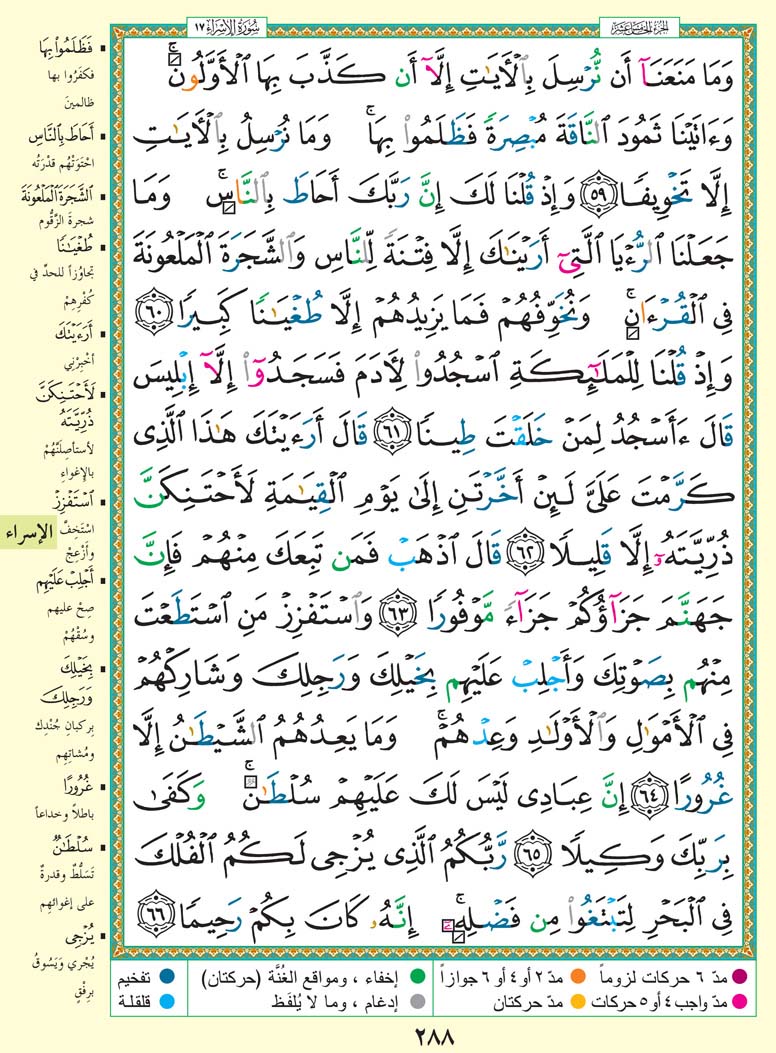 الجزء الخامس عشر
سورة الإسراء ١٧
وَمَا مَنَعَنَآ أَن نُّرْسِلَ بِالْأَيَٰتِ إِلَّآ أَن كَذَّبَ بِهَا الْأَوَّلُونَۚ
وَءَاتَيْنَا ثَمُودَ النَّاقَةَ مُبْصِرَةً فَظَلَمُواْ بِهَاۚ وَمَا نُرْسِلُ بِالْأَيَٰتِ
إِلَّا تَخْوِيفًا ٥٩ وَإِذْ قُلْنَا لَكَ إِنَّ رَبَّكَ أَحَاطَ بِالنَّاسِۚ وَمَا
جَعَلْنَا الرُّءْيَا الَّتِىٓ أَرَيْنَٰكَ إِلَّا فِتْنَةً لِّلنَّاسِ وَالشَّجَرَةَ الْمَلْعُونَةَ
فِى الْقُرْءَانِۚ وَنُخَوِّفُهُمْ فَمَا يَزِيدُهُمْ إِلَّا طُغْيَٰنًا كَبِيرًا ٦٠
وَإِذْ قُلْنَا لِلْمَلَٰٓئِكَةِ اسْجُدُواْ لِأَدَمَ فَسَجَدُوٓاْ إِلَّآ إِبْلِيسَ
قَالَ ءَأَسْجُدُ لِمَنْ خَلَقْتَ طِينًا ٦١ قَالَ أَرَءَيْتَكَ هَٰذَا الَّذِى
كَرَّمْتَ عَلَىَّ لَئِنْ أَخَّرْتَنِ إِلَىٰ يَوْمِ الْقِيَٰمَةِ لَأَحْتَنِكَنَّ
ذُرِّيَّتَهُۥٓ إِلَّا قَلِيلًا ٦٢ قَالَ اذْهَبْ فَمَن تَبِعَكَ مِنْهُمْ فَإِنَّ
جَهَنَّمَ جَزَآؤُكُمْ جَزَآءً مَّوْفُورًا ٦٣ وَاسْتَفْزِزْ مَنِ اسْتَطَعْتَ
مِنْهُم بِصَوْتِكَ وَأَجْلِبْ عَلَيْهِم بِخَيْلِكَ وَرَجِلِكَ وَشَارِكْهُمْ
فِى الْأَمْوَٰلِ وَالْأَوْلَٰدِ وَعِدْهُمْۚ وَمَا يَعِدُهُمُ الشَّيْطَٰنُ إِلَّا
غُرُورًا ٦٤ إِنَّ عِبَادِى لَيْسَ لَكَ عَلَيْهِمْ سُلْطَٰنٌۚ وَكَفَىٰ
بِرَبِّكَ وَكِيلًا ٦٥ رَّبُّكُمُ الَّذِى يُزْجِى لَكُمُ الْفُلْكَ
فِى الْبَحْرِ لِتَبْتَغُواْ مِن فَضْلِهِۦٓۚ إِنَّهُۥ كَانَ بِكُمْ رَحِيمًا ٦٦
▪ فَظَلَمُوا بِهَا
فكفرُوا بها
ظالمينَ
▪ أَحَاطَ بِالنَّاسِ
احْتَوَتْهُم قدْرَتُه
▪ الشَّجَرَةَ الْمَلْعُونَةَ
شجرةَ الزَّقُّوم
▪ طُغْيَٰنًا
تجاوُزاً للحدِّ في
كُفْرِهِمْ
▪ أَرَءَيْتَكَ
أخبِرْني
▪ لَأَحْتَنِكَنَّ
ذُرِّيَّتَهُ
لأستأصِلَنَّهُمْ
بالإغواءِ
▪ اسْتَفْزِزْ
اسْتَخِفَّ
وأَزْعِجْ
▪ أَجْلِبْ عَلَيْهِم
صِحْ عليهم
وسُقْهُمْ
▪ بِخَيْلِكَ
وَرَجِلِكَ
بركبانِ جُنْدِك
ومُشاتِهِم
▪ غُرُورًا
باطلاً وخداعاً
▪ سُلْطَٰنٌ
تَسَلُّطٌ وقدرةٌ
على إغوائِهِم
▪ يُزْجِى
يُجْري ويَسُوقُ
برِفْقٍ
الإسراء
مدّ ٦ حركات لزوماً
مدّ ٢ أو ٤ أو ٦ جوازاً
إخفاء ، ومواقع الغُنَّة (حركتان)
تفخيم
مدّ واجب ٤ أو ٥ حركات
مدّ حركتان
إدغام ، وما لا يُلفَظ
قلقلة
٢٨٨